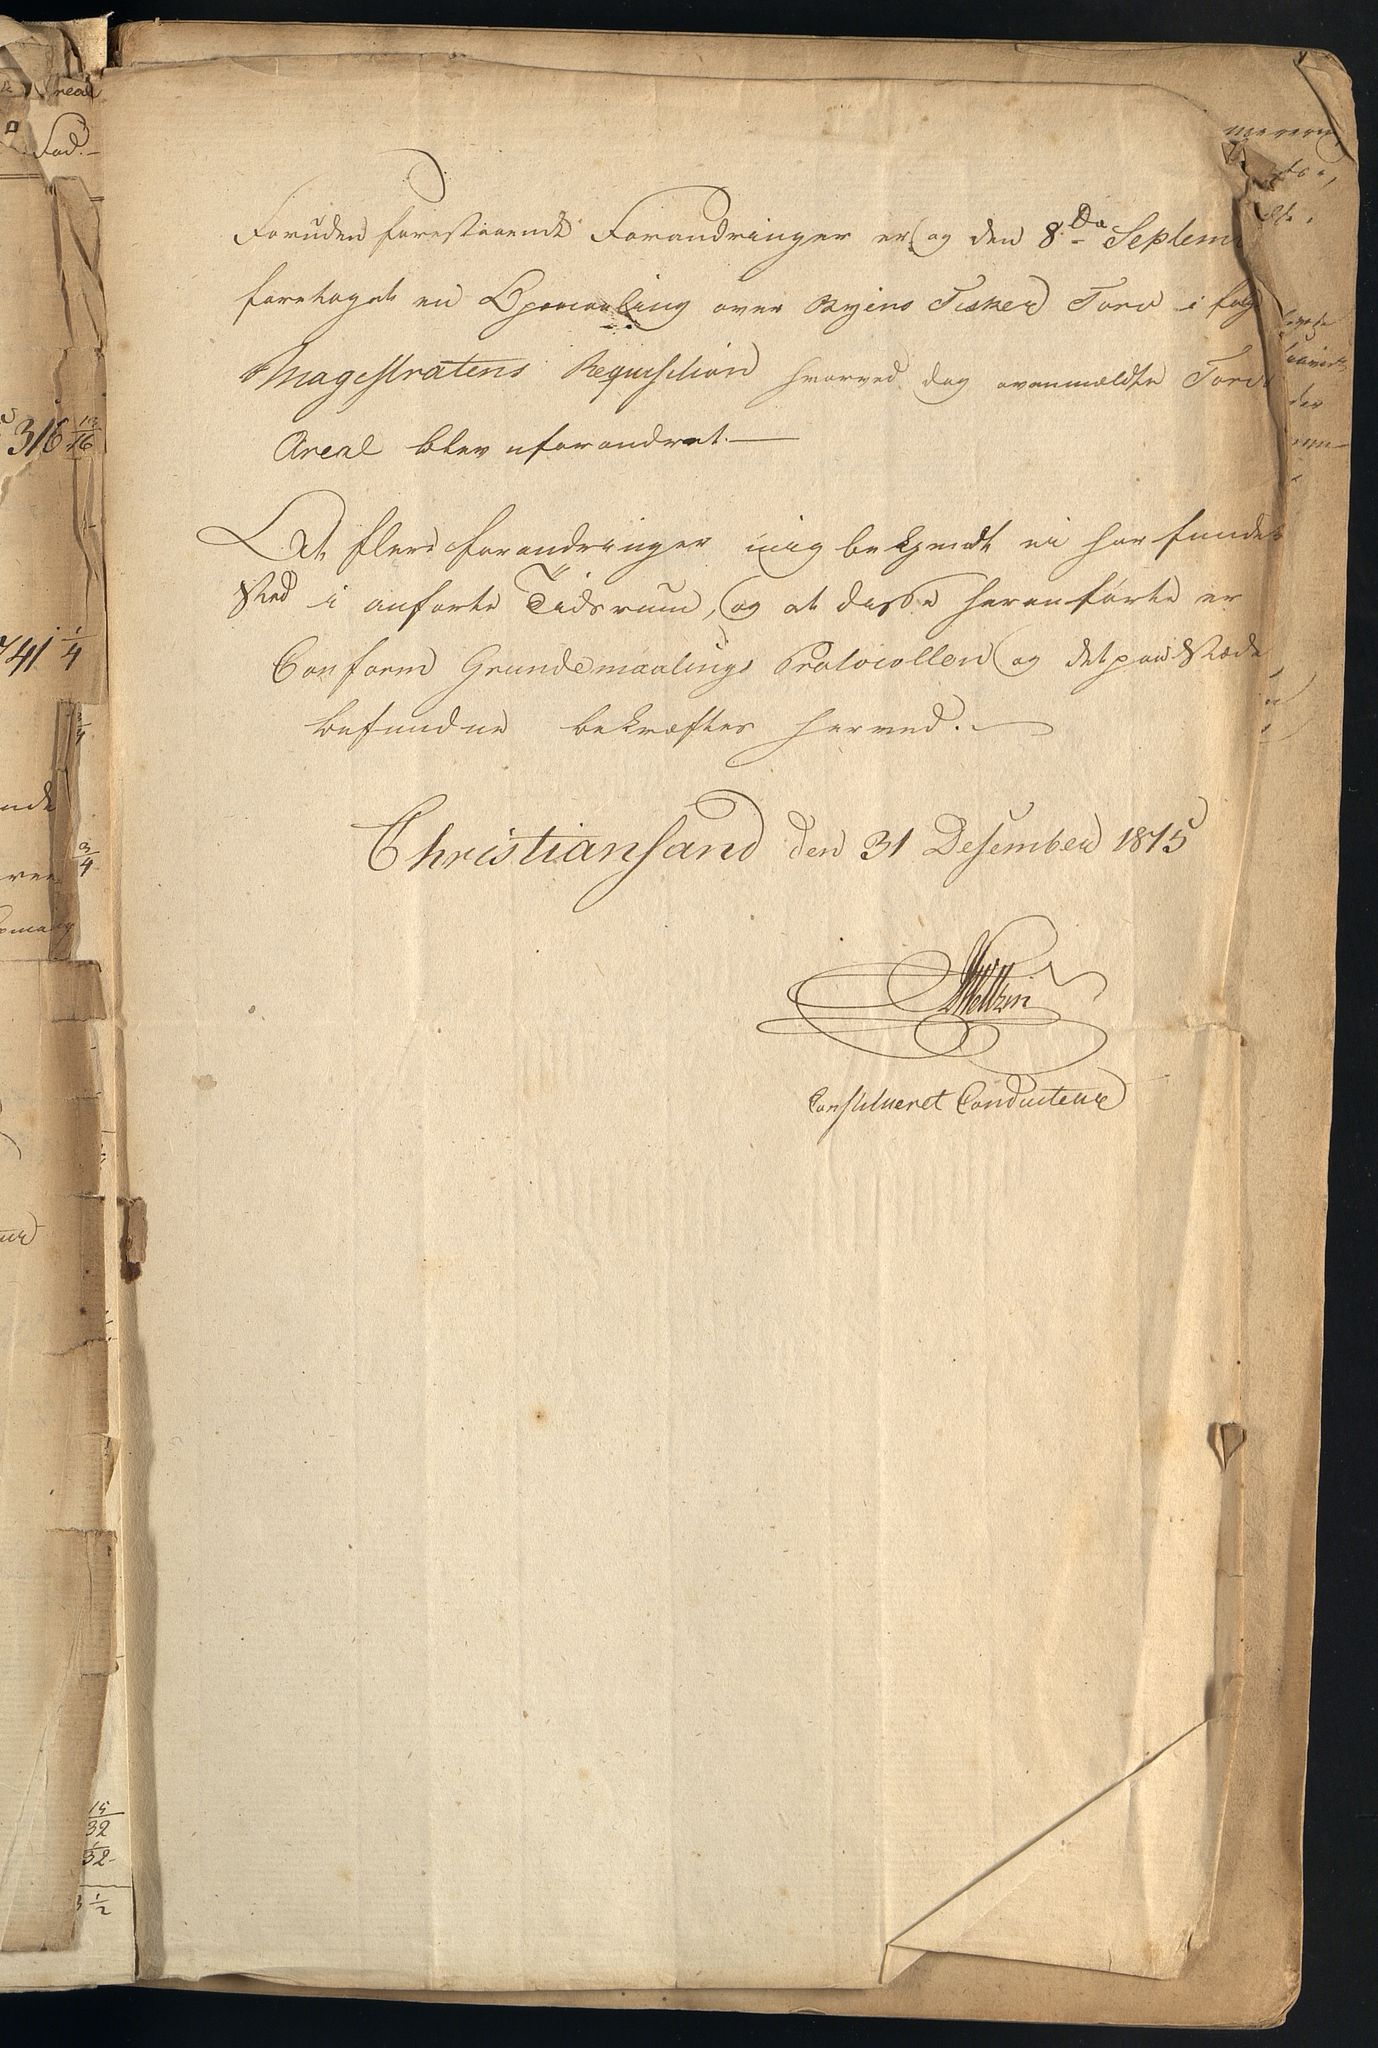 Foruden forestaaende Forandringer er og den 8de Septem
foretaget en Opmaaling over Byens Fisker Torv i følg
Magestratens Requisition hvorved dog ovenmældte Torvs
Areal blev uforandret.—
At flere forandringer mig bekjendt ei har fundet
Sted i anførte Tidsrum, og at disse heranførte er
Conform Grundemaalings Protocollen og det paa Stæde
befundne bekræftes herved.
Christiansand den 31 Desember 1815
Constitueret Conducteur
Areal
Fod.
316 13/16
741 1/4
3/4
15/32
1/32
1/2